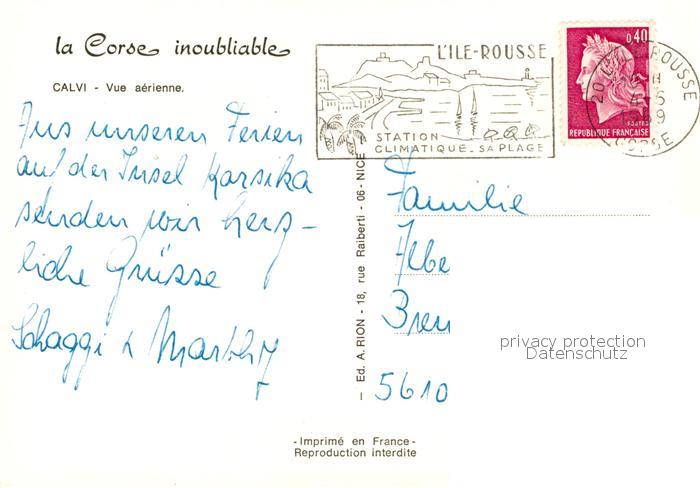 la Corse inoubliable
CALVI - Vue aérienne.
Aus unseren Ferien
auf der Insel Korsika
senden wir herz-
liche Grüsse
Schaggi &
L'ILE-ROUSSE
STATION
CLIMATIQUE. SA PLAGE
0,40
POSTES
REPUBLIQUE FRANÇAISE
20 L'ILE-ROUSSE
CORSE
— Ed. A. RION - 18, rue Raiberti - 06 - NICE
Familie
Bren
5610
privacy protection
Datenschutz
-Imprimé en France-
Reproduction interdite